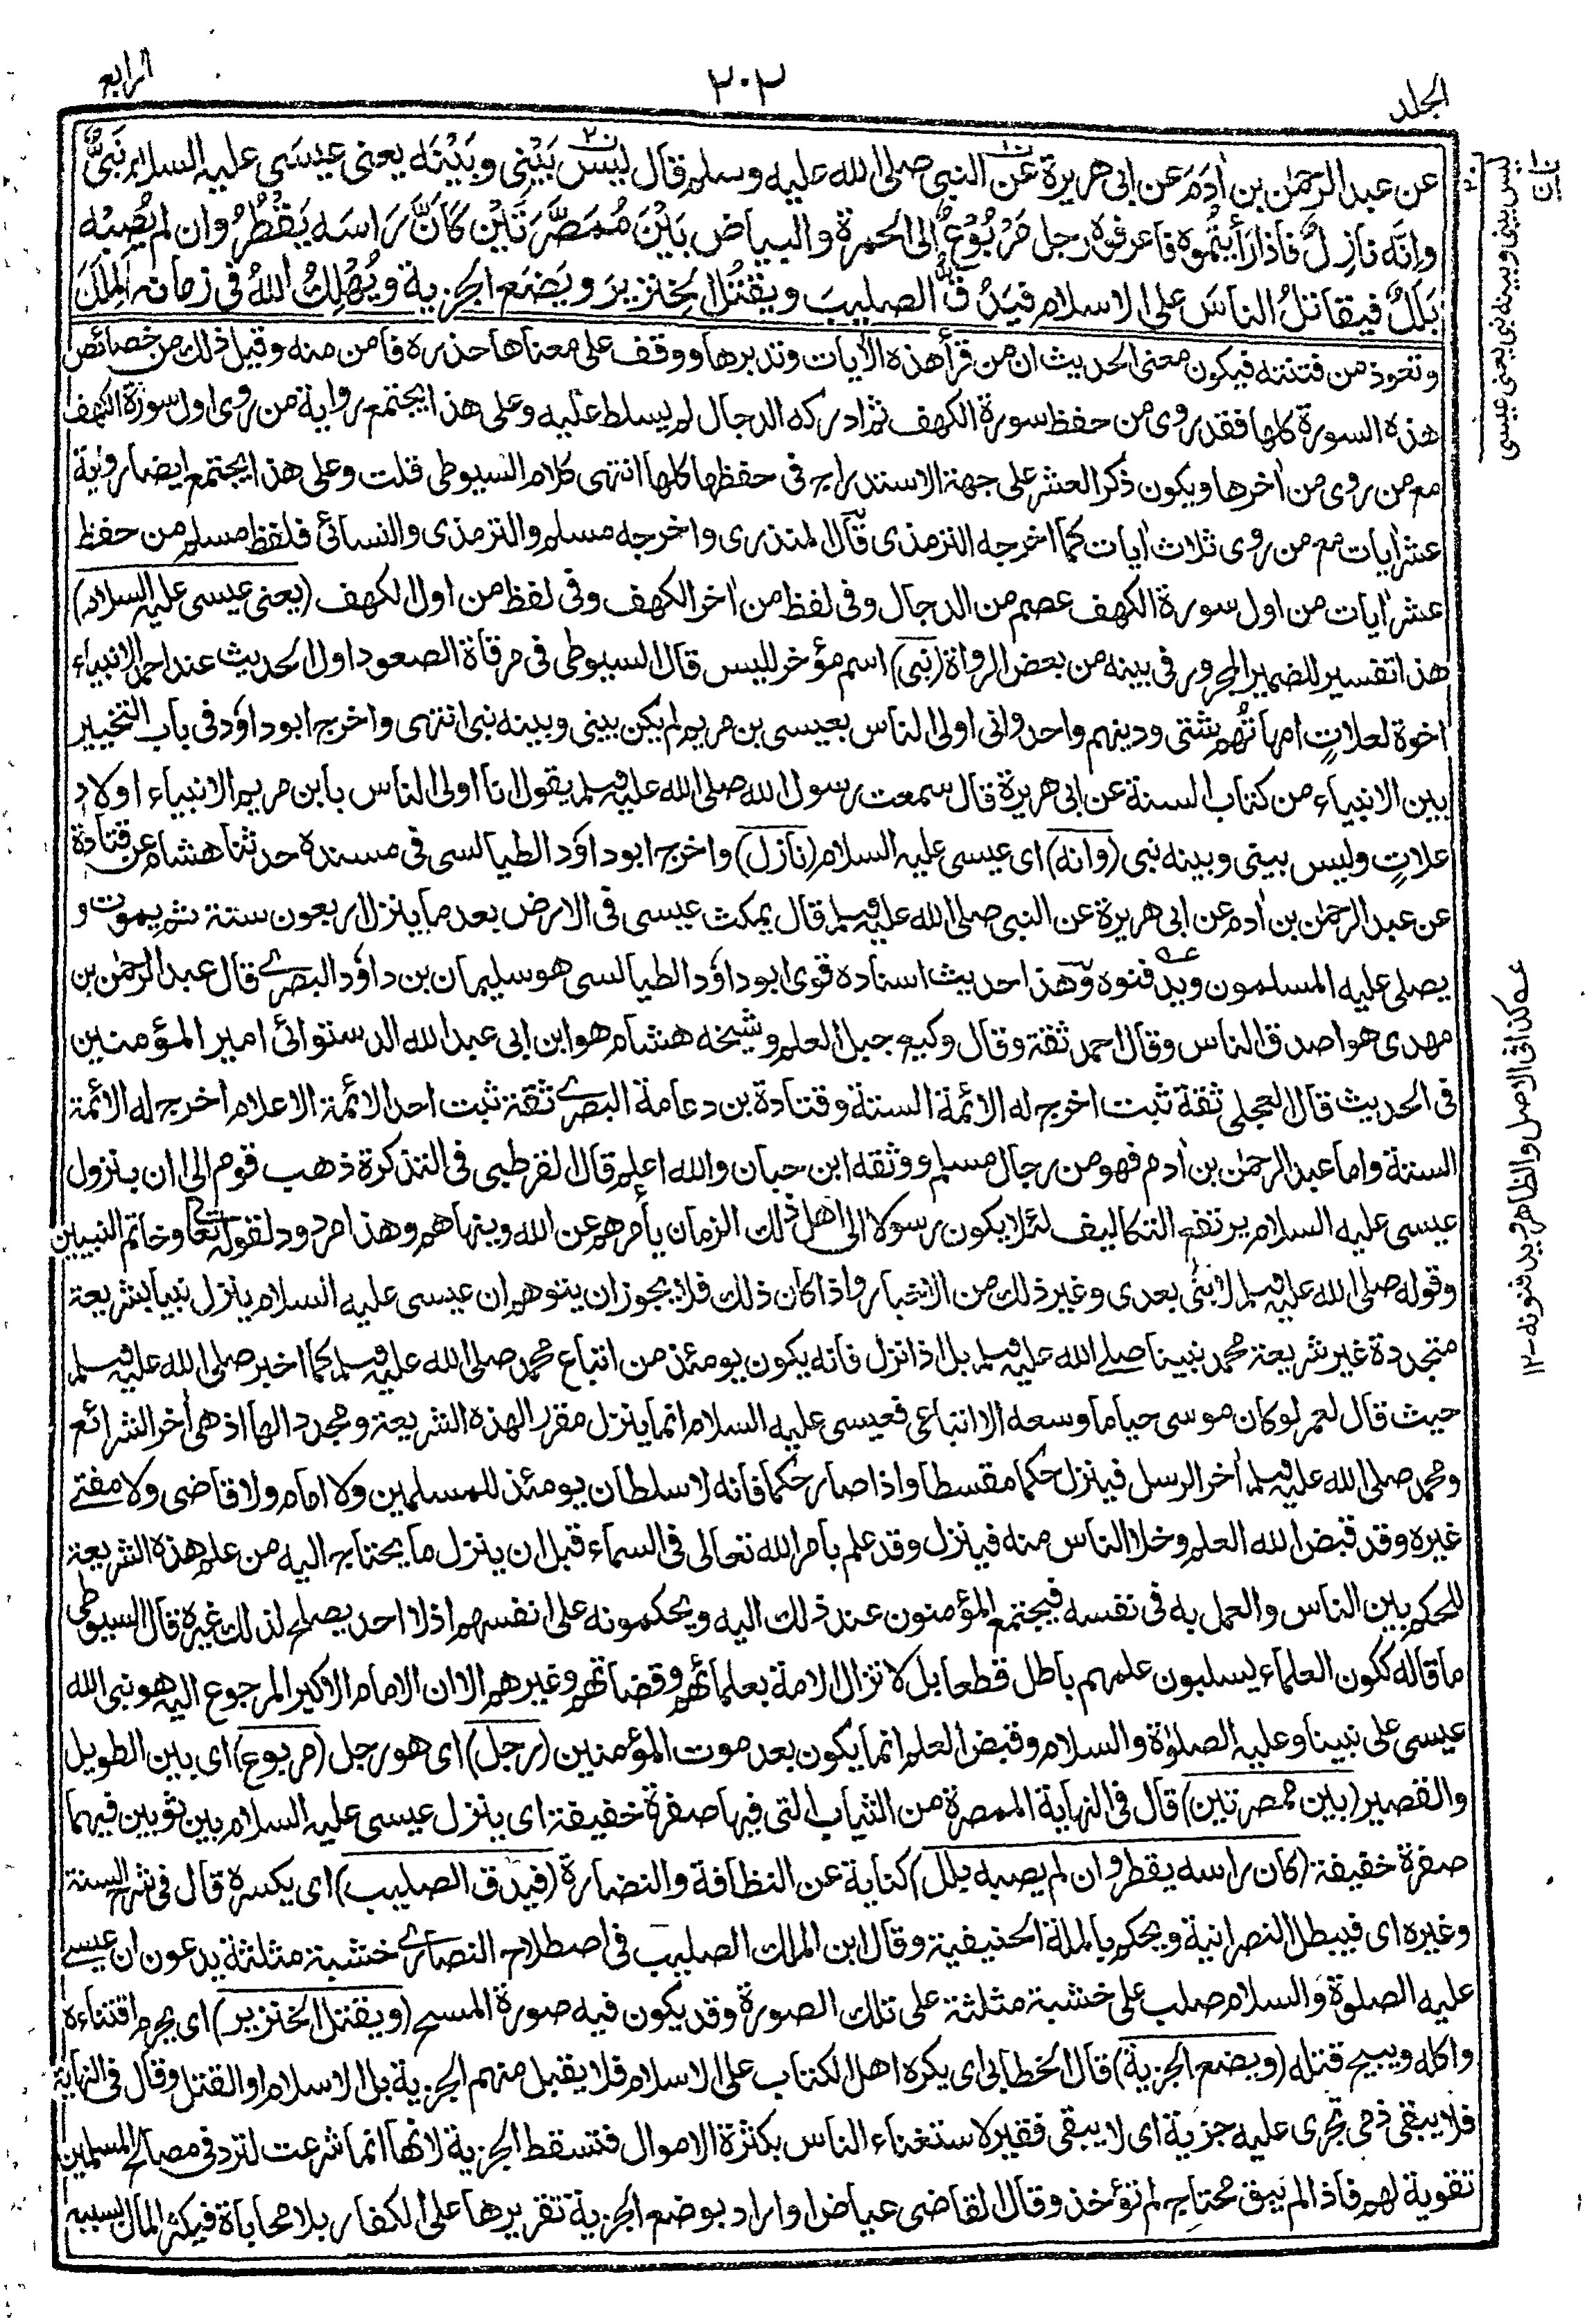 الجلد
٢٠٣
الرابع
عن عبد الرحمٰن بن اٰدَمَ عن ابى هريرة عن النبى صلى الله عليه وسلم قال ليس بَيْنِى وبَيْنَه يعنى عيسَى عليه السلام نَبِىٌّ
وإنَّه نازِلٌ فاذا رَأيتُموه فاعرفوه رجل مَرْبُوْعٌ الى الحمرة والبياض بَيْنَ مُمَصَّرَتَيْن كَانَّ رَاسَه يَقْطُرُ وان لم يُصِبْه
بَلَلٌ فيقاتلُ الناسَ على الاسلام فيَدُقُّ الصليبَ ويقتُل الخنزيرَ ويَضَع الجزيةَ ويُهْلِكُ اللهُ فى زمانه المِلَلَ
وتعوذ من فتنته فيكون معنى الحديث ان من قرأ هذه الاٰيات وتدبرها ووقف على معناها حذره فامن منه وقيل ذلك من خصائص
هذه السورة كلها فقد روى من حفظ سورة الكهف ثم ادركه الدجال لم يسلط عليه وعلى هذا يجتمع رواية من روى اول سورة الكهف
مع من روى من اٰخرها ويكون ذكر العشر على جهة الاستدراج فى حفظها كلها انتهى كلام السيوطى قلت وعلى هذا يجتمع ايضا رواية
عشر اٰيات مع من روى ثلاث اٰيات كما اخرجه الترمذى قال المنذرى واخرجه مسلم والترمذى والنسائى فلفظ مسلم من حفظ
عشر اٰيات من اول سورة الكهف عصم من الدجال وفى لفظ من اٰخر الكهف وفى لفظ من اول الكهف (يعنى عيسى عليه السلام)
هذا تفسير للضمير المجرور فى بينه من بعض الرواة (نبى) اسم مؤخر لليس قال السيوطى فى مرقاة الصعود اول الحديث عند احمد الانبياء
اخوة لعلاتٍ امهاتُهم شتى ودينهم واحد وانى اولى الناس بعيسى بن مريم لم يكن بينى وبينه نبى انتهى واخرج ابوداود فى باب التخيير
بين الانبياء من كتاب السنة عن ابى هريرة قال سمعت رسول الله صلى الله عليه وسلم يقول انا اولى الناس بابن مريم الانبياء اولاد
علاتٍ وليس بينى وبينه نبى (وانه) اى عيسى عليه السلام (نازل) واخرج ابوداود الطيالسى فى مسنده حدثنا هشام عن قتادة
عن عبد الرحمٰن بن اٰدم عن ابى هريرة عن النبى صلى الله عليه وسلم قال يمكث عيسى فى الارض بعد ما ينزل اربعون سنة ثم يموت و
يصلى عليه المسلمون ويدفنوه وهذا حديث اسناده قوى ابوداود الطيالسى هو سليمان بن داود البصرى قال عبد الرحمٰن بن
مهدى هو اصدق الناس وقال احمد ثقة وقال وكيع جبل العلم وشيخه هشام هو ابن ابى عبد الله الدستوائى امير المؤمنين
فى الحديث قال العجلى ثقة ثبت اخرج له الائمة الستة وقتادة بن دعامة البصرى ثقة ثبت احد الائمة الاعلام اخرج له الائمة
الستة واما عبد الرحمٰن بن اٰدم فهو من رجال مسلم ووثقه ابن حبان والله اعلم قال القرطبى فى التذكرة ذهب قوم الى ان بنزول
عيسى عليه السلام يرتفع التكاليف لئلا يكون رسولا الى اهل ذلك الزمان يأمرهم عن الله وينهاهم وهذا مردود لقوله تعالى وخاتم النبيين
وقوله صلى الله عليه وسلم لا نبى بعدى وغير ذلك من الاخبار واذا كان ذلك فلا يجوز ان يتوهم ان عيسى عليه السلام ينزل نبيا بشريعة
متجددة غير شريعة محمد نبينا صلى الله عليه وسلم بل اذا نزل فانه يكون يومئذ من اتباع محمد صلى الله عليه وسلم كما اخبر صلى الله عليه وسلم
حيث قال لعمر لو كان موسى حيا ما وسعه الا اتباعى فعيسى عليه السلام انما ينزل مقررا لهذه الشريعة ومجددا لها اذ هى اٰخر الشرائع
ومحمد صلى الله عليه وسلم اٰخر الرسل فينزل حكما مقسطا واذا صار حكما فانه لا سلطان يومئذ للمسلمين ولا امام ولا قاضى ولا مفتى
غيره وقد قبض الله العلم وخلا الناس منه فينزل وقد علم بامر الله تعالى فى السماء قبل ان ينزل ما يحتاج اليه من علم هذه الشريعة
للحكم بين الناس والعمل به فى نفسه فيجتمع المؤمنون عند ذلك اليه ويحكمونه على انفسهم اذ لا احد يصلح لذلك غيره قال السيوطى
ما قاله ككون العلماء يسلبون علمهم باطل قطعا بل لا تزال الامة بعلمائهم وقضاتهم وغيرهم الا ان الامام الاكبر المرجوع اليه هو نبى الله
عيسى على نبينا وعليه الصلوٰة والسلام وقبض العلم انما يكون بعد موت المؤمنين (رجل) اى هو رجل (مربوع) اى بين الطويل
والقصير (بين ممصرتين) قال فى النهاية الممصرة من الثياب التى فيها صفرة خفيفة اى ينزل عيسى عليه السلام بين ثوبين فيهما
صفرة خفيفة (كان راسه يقطر وان لم يصبه بلل) كناية عن النظافة والنضارة (فيدق الصليب) اى يكسره قال فى شرح السنة
وغيره اى فيبطل النصرانية ويحكم بالملة الحنيفية وقال ابن الملك الصليب فى اصطلاح النصارى خشبة مثلثة يدعون ان عيسى
عليه الصلوٰة والسلام صلب على خشبة مثلثة على تلك الصورة وقد يكون فيه صورة المسيح (ويقتل الخنزير) اى يحرم اقتناءه
واكله ويبيح قتله (ويضع الجزية) قال الخطابى اى يكره اهل الكتاب على الاسلام فلا يقبل منهم الجزية بل الاسلام او القتل وقال فى النهاية
فلا يبقى ذمى تجرى عليه جزية اى لا يبقى فقير لاستغناء الناس بكثرة الاموال فتسقط الجزية لانها انما شرعت لترد فى مصالح المسلمين
تقوية لهم فاذا لم يبق محتاج لم تؤخذ وقال القاضى عياض او اراد بوضع الجزية تقريرها على الكفار بلا محاباة فيكثر المال بسببه
ليس بينى وبينه نبى يعنى عيسى
عه كذا فى الاصل والظاهر ويدفنونه ١٢